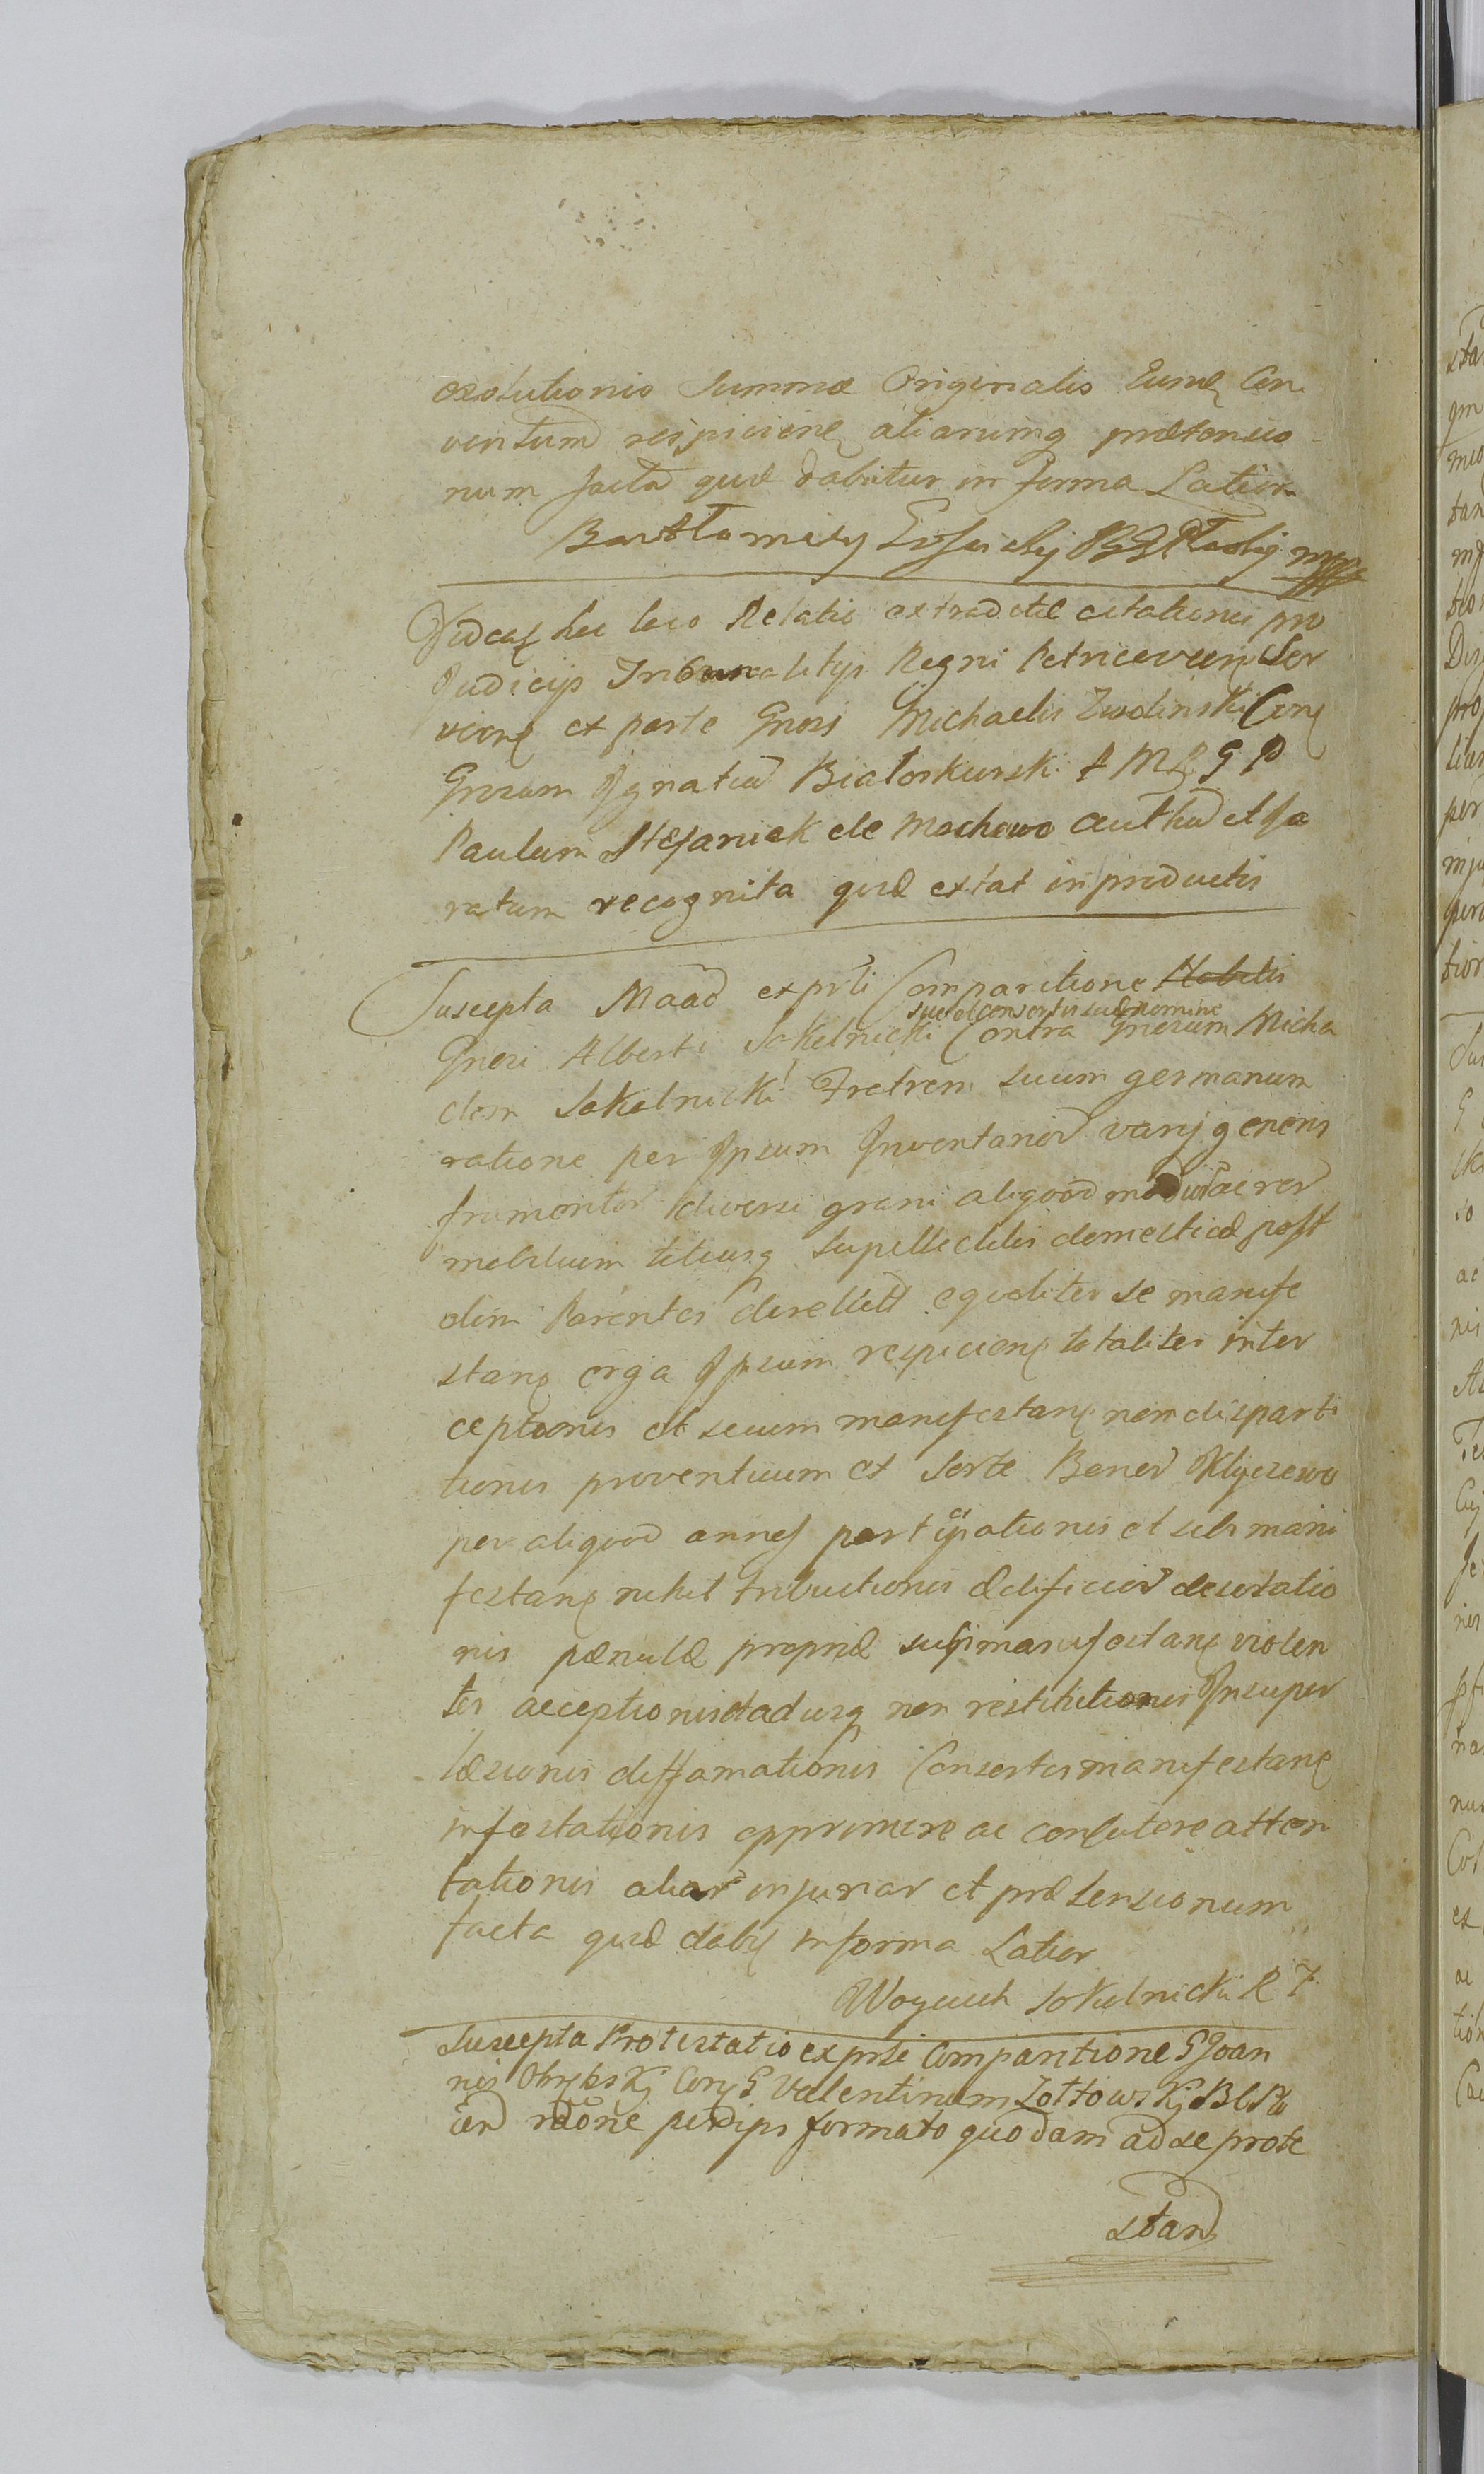 exolutionis Summæ Originalis Eund Con
ventum respiciend aliarumq prætensio
num facta quæ dabitur in forma Latior
Bartłomiey
Vidcat hic loco Relatio extraditæ citationis pro
Judicijs Tribunalitijs Regni Petricoven Ser
vien ex parte Gnosi Michaelis Zwolinski Con
Gnosum Ignatiu Białoskurski A M R G P
Paulum Stefaniek de Mochowo authen et Ju
ratum recognita quæ extat in productis
Suscepta Maão ex prlî Comparitione Nobilis
sue et consortis suæ nomine
Gnosi Alberti Sokolnicki Contra Gnosum Micha
elem Sokolnicki Fratrem suum germanum
ratione per Ipsum Inventarior varij generis
frumentor diversi grani aliquod modior ac rer
mobilium totiusq supellectilis domesticæ post
olim Parentes derelictæ equaliter se manife
stan erga Ipsum respicien totaliter inter
ceptionis et secum manifestan non disparti
tionis proventuum ex Sorte Bonor Klyczewo
per aliquod annos participationis et sibi mani
festan nihil tributionis ædificior desolatio
nis pænulæ propriæ suæ manifestan violen
ter acceptionis et adusq non restitutionis Insuper
læsionis diffamationis Consortis manifestan
infestationis opprimere ac confutere atten
tationis aliar injuriar et prætensionum
facta quæ dabit in forma Latior
Woyciech Sokolnicki R Z
Suscepta Protestatio ex prlsi Comparitione G Joan
nis Obrębskj Con G Valentinum Zołtowskj B C Plo
cen raõne per ips formato quodam ad se prote
stan